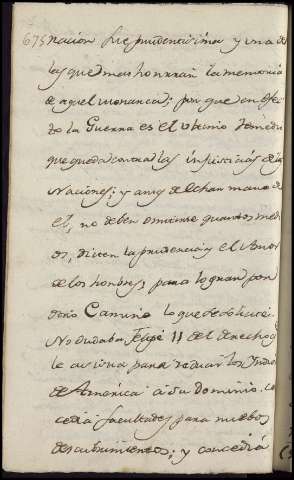 675 nacion fue prudentisima y una de
las que mas honrran la memoria
de aquel monarca; por que en efec-
to la Guerra es el ultimo remedio
que queda contra las injusticias de las
Naciones; y antes de echar mano de
el, no deben omitirse quantos medi
os, dicten la prudencia y el Amor
de los hombres, para lograr por
otro Camino lo que se solicita.
No dudaba Felipe II del derecho q.
le asistia para reducir los Indios
de America á su Dominio. Con
cedia facultades para nuebos
descubrimientos; y concedia